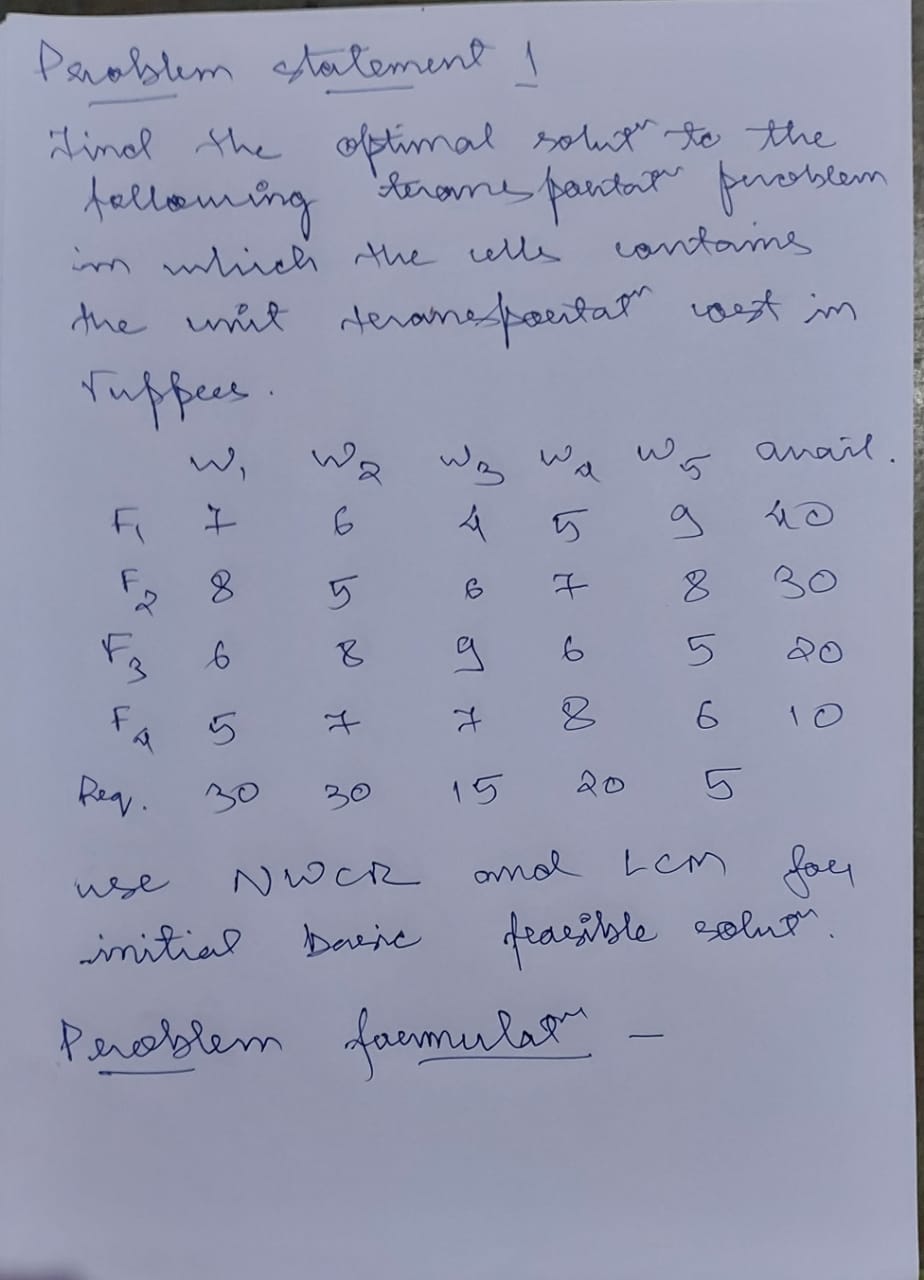 Problem statement 1
Find the optimal solutn to the
following transportatn problem
in which the cells contains
the unit transportatn cost in
ruppees.
W1 W2 W3 W4 W5 avail.
F1 7 6 4 5 9 40
F2 8 5 6 7 8 30
F3 6 8 9 6 5 20
F4 5 7 7 8 6 10
Req. 30 30 15 20 5
use NWCR and LCM for
initial basic feasible solutn.
Problem formulatn –